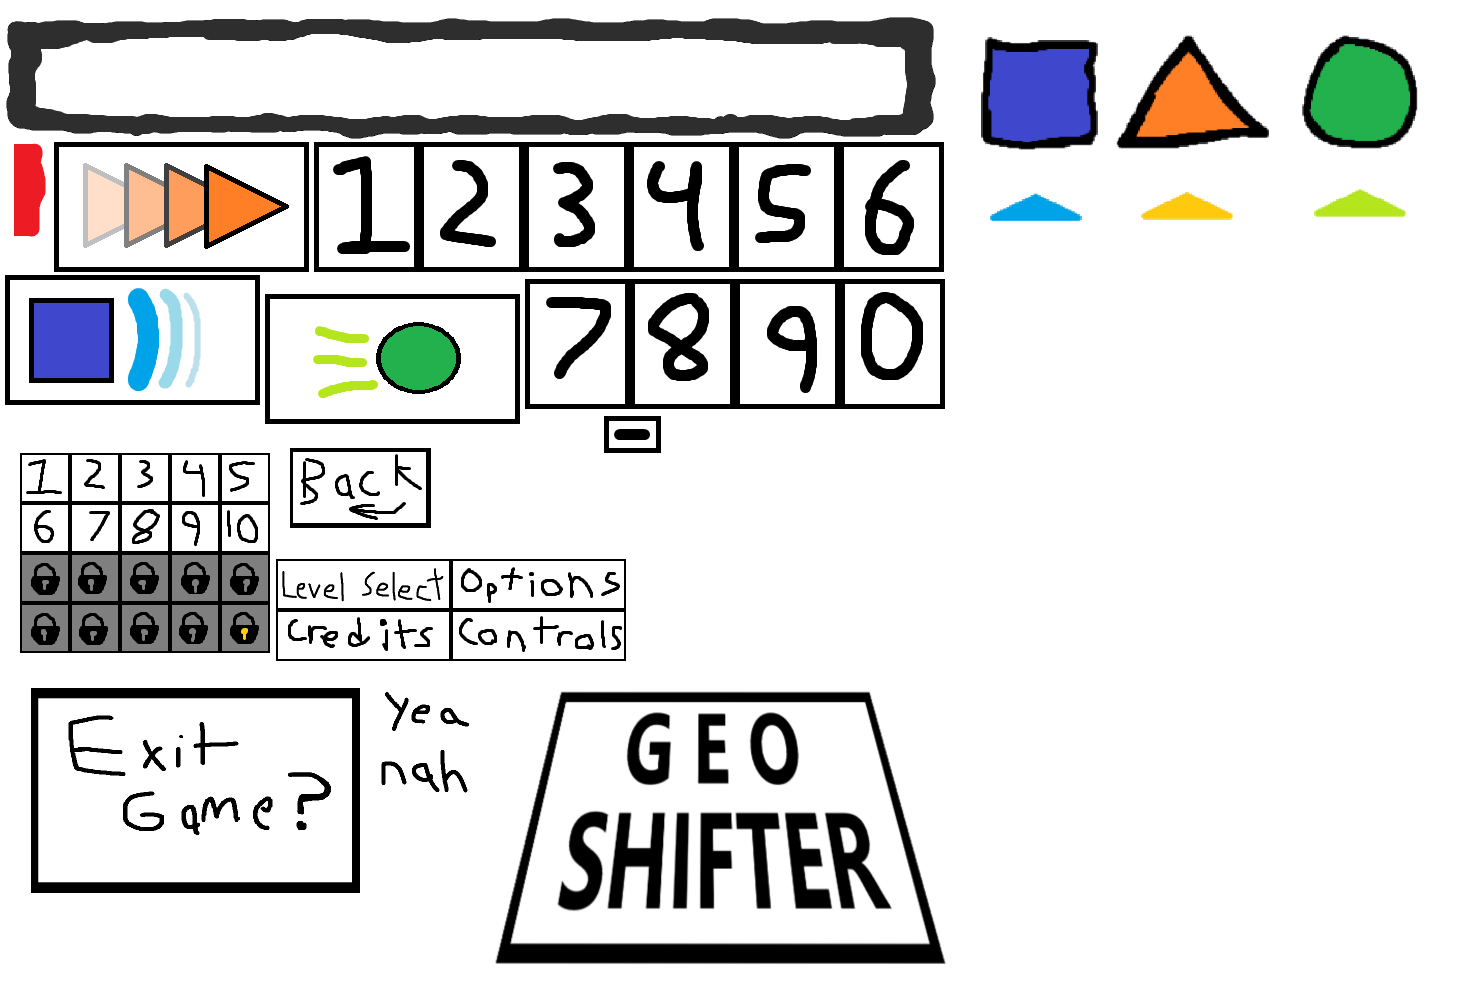 1 2 3 4 5 6
7 8 9 0
-
1 2 3 4 5
6 7 8 9 10
Back
Level Select Options
Credits Controls
Exit
Game?
yea
nah
GEO
SHIFTER